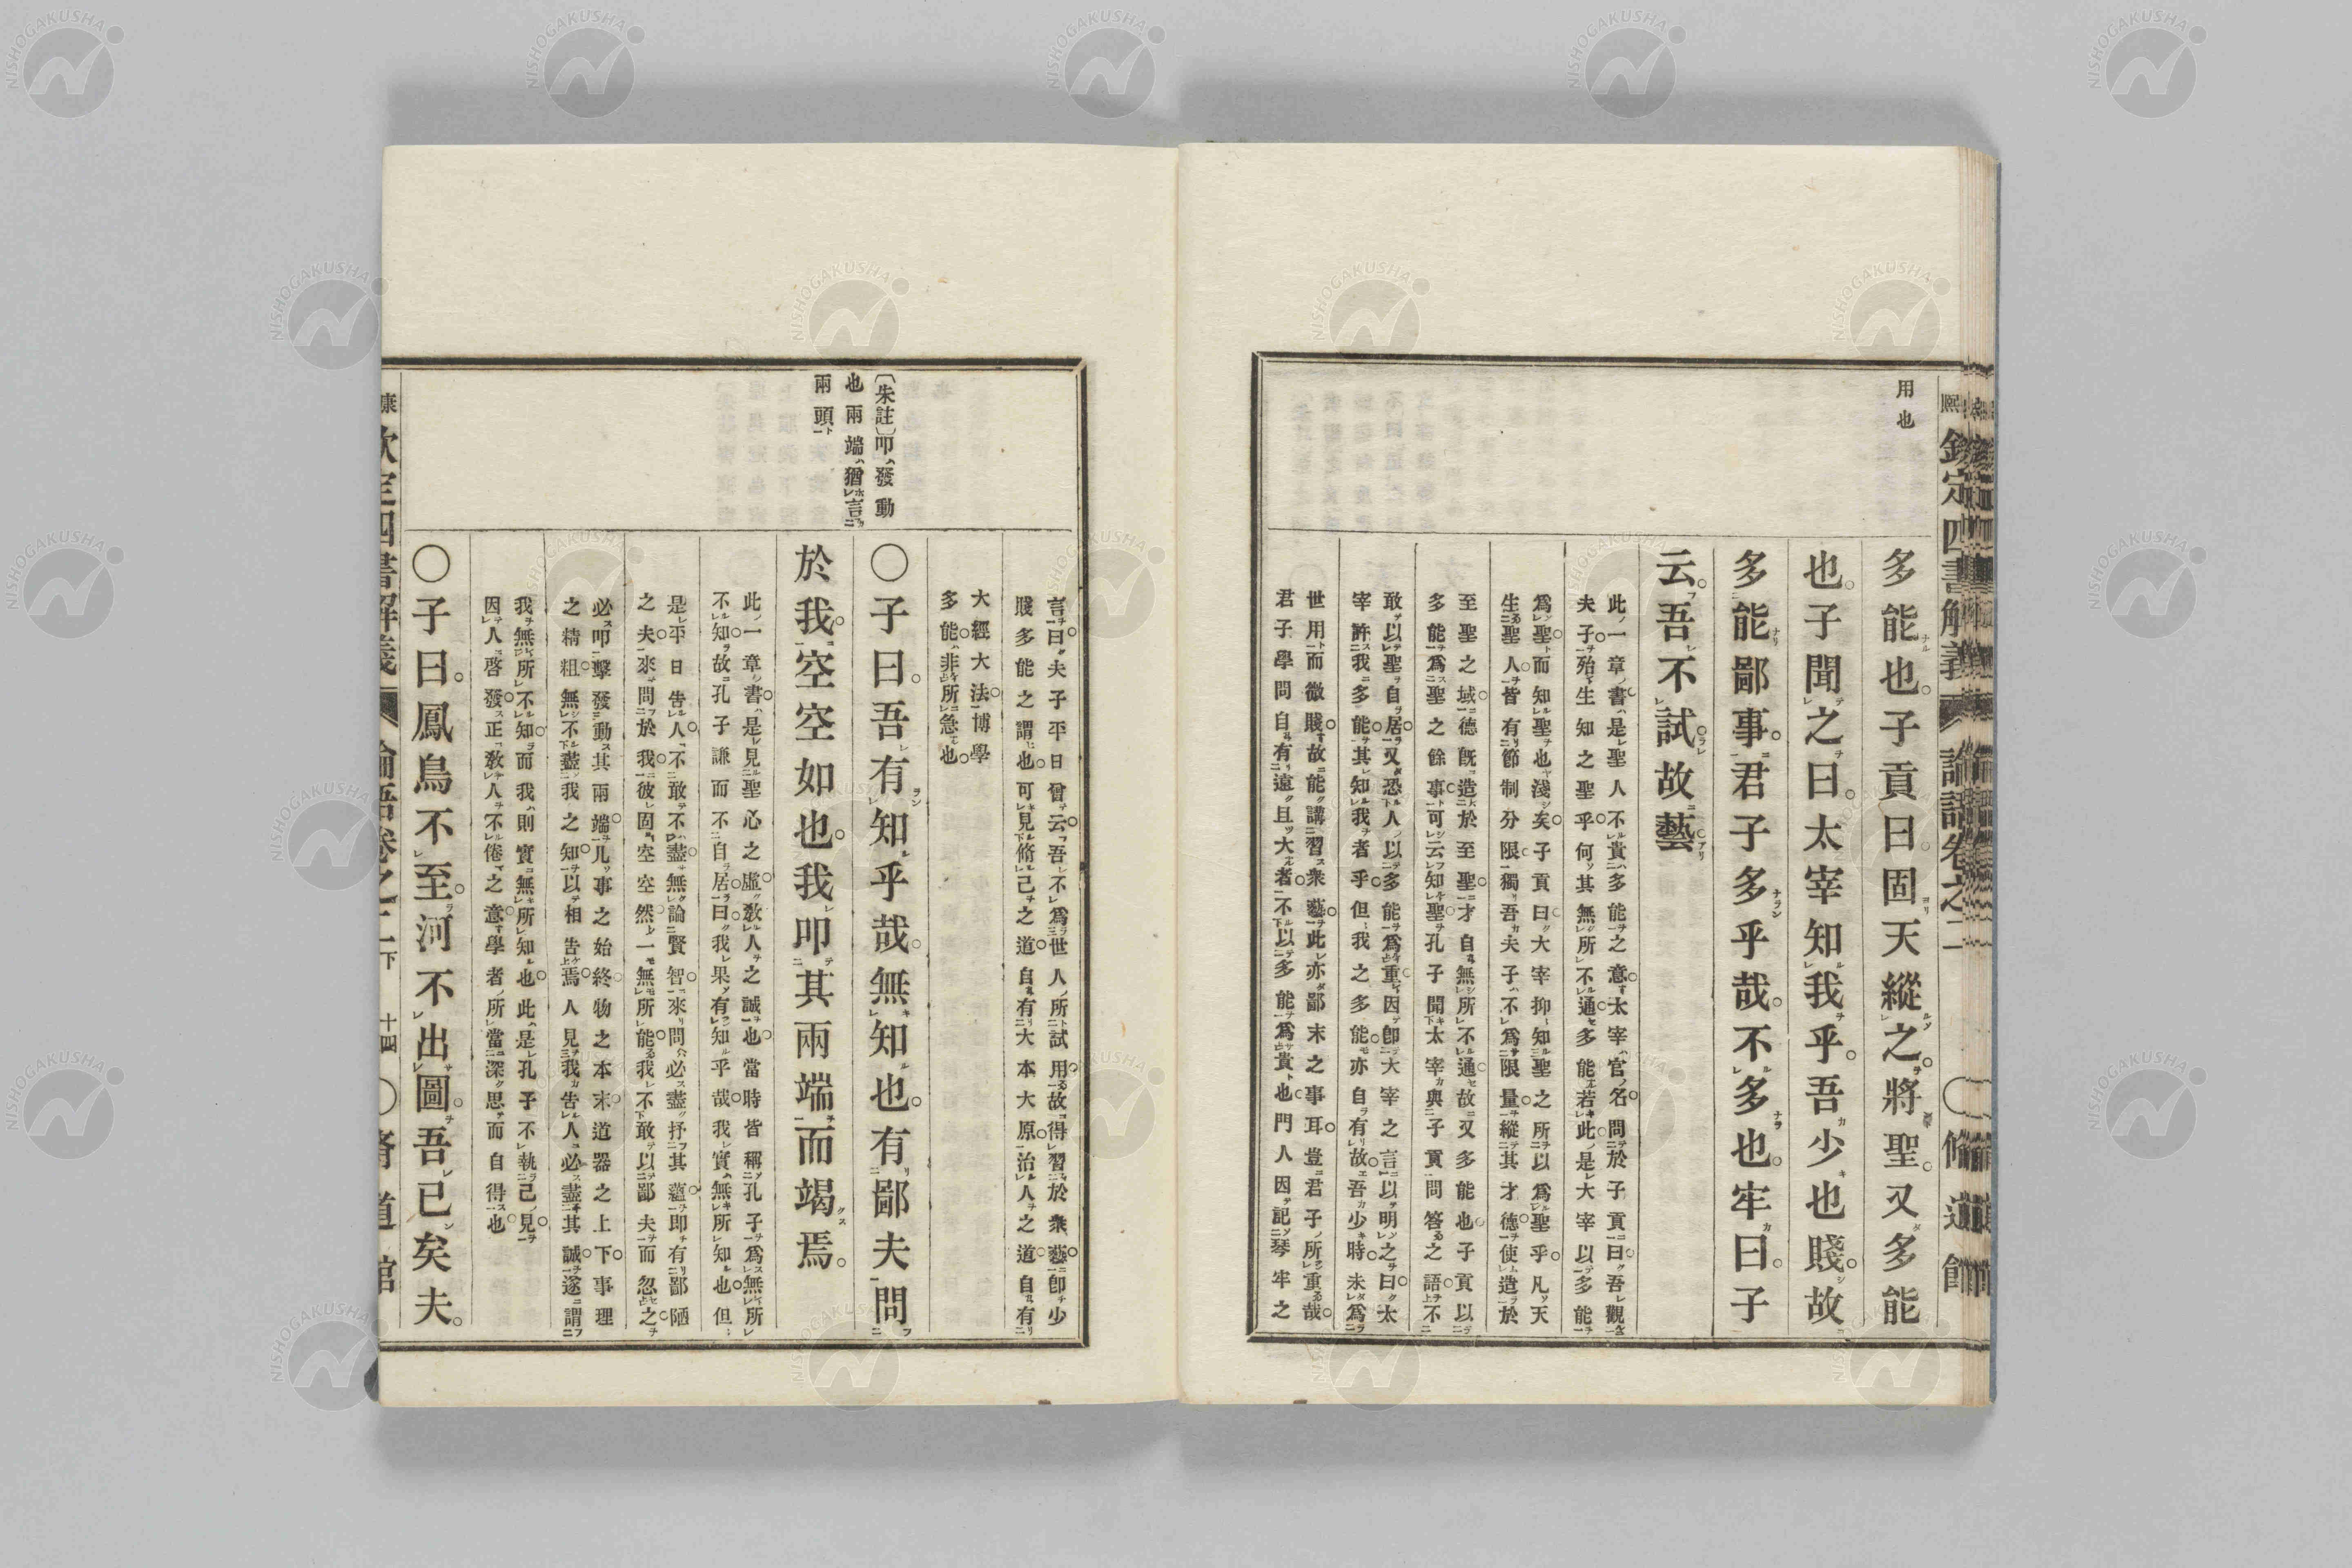 用也
多能也。子貢曰。固天縱之。將聖。又多能
也。子聞之曰。太宰知我乎。吾少也賤。故
多能鄙事。君子多乎哉。不多也。牢曰。子
云。吾不試。故藝
此一章書。是聖人不貴多能之意。太宰官名。問於子貢曰。吾觀
夫子。殆生知之聖乎。何其無所不通。多能若此。是大宰以多能
爲聖。而知聖也淺矣。子貢曰。大宰抑知聖之所以爲聖乎。凡天
生聖人。皆有節制分限。獨吾夫子。不爲限量。縱其才德。使造於
至聖之域。德旣造於至聖。才自無所不通。故又多能也。子貢以
多能爲聖之餘事。可云知聖。孔子聞太宰與子貢問答之語。不
敢以聖自居。又恐人以多能爲重。因卽大宰之言。以明之曰。太
宰許我多能。其知我者乎。但我之多能。亦自有故。吾少時。未爲
世用。而微賤。故能講習衆藝。此亦鄙末之事耳。豈君子所重哉。
君子學問。自有遠且大者。不以多能爲貴也。門人因記琴牢之
欽定四書解義 論語卷之二 〇脩道館
言曰。夫子平日曾云。吾不爲世人所試用。故得習於衆藝。卽少
賤多能之謂也。可見脩己之道。自有大本大原。治人之道。自有
大經大法。博學
多能。非所急也。
〔朱註〕叩發動
也兩端猶言
兩頭
〇子曰。吾有知乎哉。無知也。有鄙夫問
於我。空空如也。我叩其兩端而竭焉。
此一章書。是見聖心之虛。敎人之誠也。當時皆稱孔子爲無所
不知。故孔子謙而不自居。曰。我果有知乎哉。我實無所知也。但
是平日告人。不敢不盡。無論賢智來問。必盡抒其蘊。卽有鄙陋
之夫。來問於我。彼固空空然。一無所能。我不敢以鄙夫而忽之。
必叩擊發動其兩端。凡事之始終。物之本末。道器之上下。事理
之精粗。無不盡我之知。以相告焉。人見我告人。必盡其誠。遂謂
我無所不知。而我則實無所知也。此是孔子不執己見。
因人啓發。正敎人不倦之意。學者所當深思而自得也。
〇子曰。鳳鳥不至。河不出圖。吾已矣夫。
欽定四書解義 論語卷之二下 十四 〇脩道館
NISHOGAKUSHA